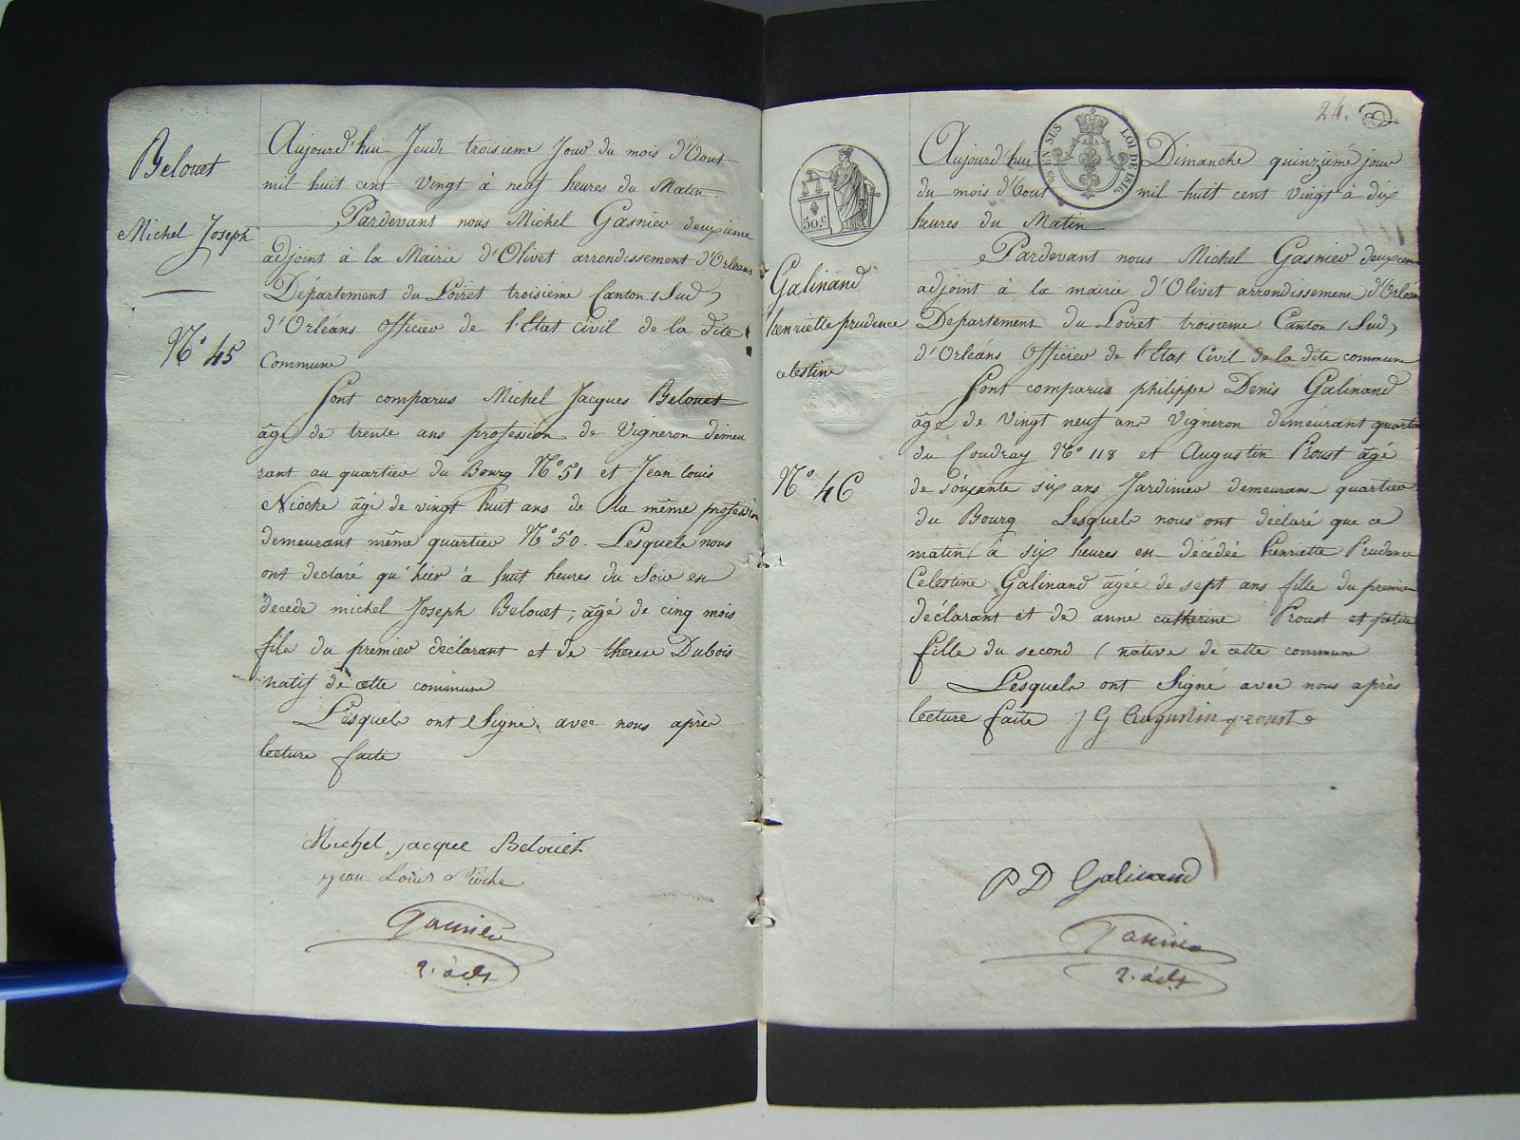 Belouet
Michel Joseph
N° 45
Aujourd'hui Jeudi troisieme Jour du mois d'Aout
mil huit cent Vingt à neuf heures du Matin
Pardevant nous Michel Gasnier deuxieme
adjoint à la Mairie d'Olivet arrondissement d'Orléans
Département du Loiret troisieme Canton (Sud)
d'Orléans Officier de l'Etat Civil de la dite
Commune
Sont comparus Michel Jacques Belouet
âgé de trente ans profession de Vigneron demeu
rant au quartier du Bourg N° 51 et Jean Louis
Nioche âgé de vingt huit ans de la même profession
demeurant même quartier N° 50. Lesquels nous
ont declaré qu'hier à huit heures du Soir est
décédé michel Joseph Belouet, âgé de cinq mois
fils du premier déclarant et de therese Dubois
natif de cette commune
Lesquels ont Signé avec nous après
lecture faite
Michel jacque Belouet
jean Louis Nioche
Gasnier
2. adjt
24.
EN SUS LOI DE 1816
50 c
Galinand
henriette prudence
celestine
N° 46
Aujourd'hui Dimanche quinzieme jour
du mois d'Aout mil huit cent Vingt à dix
heures du Matin
Pardevant nous Michel Gasnier deuxieme
adjoint à la mairie d'Olivet arrondissement d'Orléans
Département du Loiret troisieme Canton (Sud)
d'Orléans Officier de l'Etat Civil de la dite commune
Sont comparus philippe Denis Galinand
âgé de Vingt neuf ans Vigneron demeurant quartier
du Coudray N° 118 et Augustin Proust âgé
de Soixante six ans Jardinier demeurant quartier
du Bourg Lesquels nous ont déclaré que ce
matin à six heures est décédée henriette Prudence
Celestine Galinand âgée de sept ans fille du premier
déclarant et de anne catherine Proust et petite
fille du second (native de cette commune
Lesquels ont Signé avec nous après
lecture faite J G Augustin proust
P D Galinand
Gasnier
2. adjt